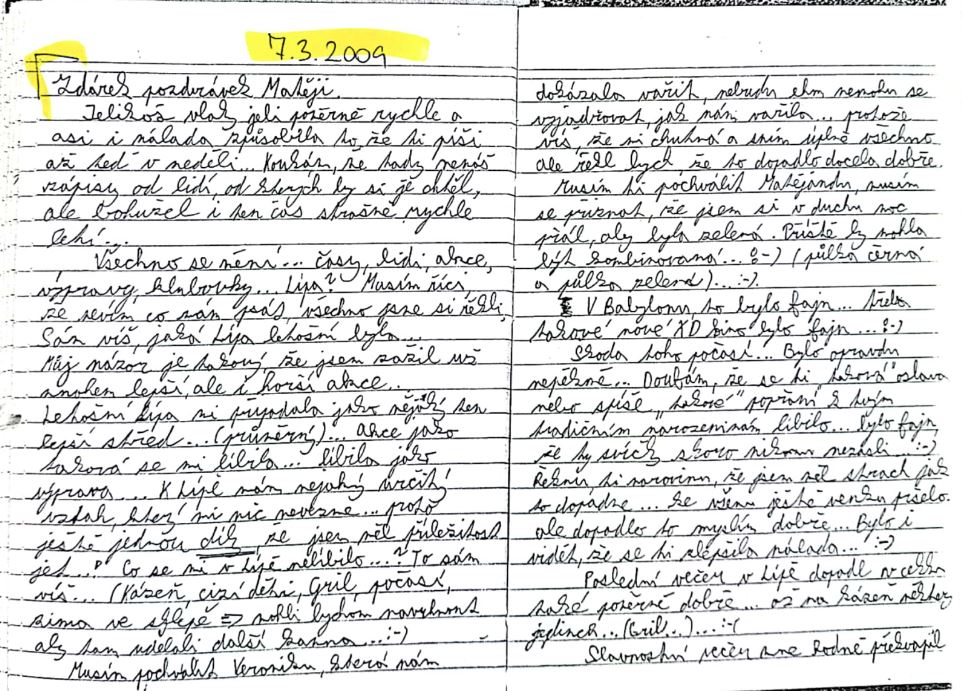 7.3.2009
Zdárek pozdrávek Matěji.
Jelikož vlak jeli poměrně rychle a
asi i nálada způsobila to, že ti píši
až teď v neděli... Koukám, že tady nemáš
zápisy od lidí, od kterých by si je chtěl,
ale bohužel i ten čas strašně rychle
letí...
Všechno se mění... časy, lidi, akce,
výpravy, klubovky... Lípa? Musím říci,
že nevím co sám psát, všechno jsme si řekli,
Sám víš, jaká Lípa letošní byla...
Můj názor je takový, že jsem zažil už
mnohem lepší, ale i horší akce...
Letošní Lípa mi připadala jako nějaký ten
lepší střed...(průměrný)... Akce jako
taková se mi líbila... líbila jako
výprava... K Lípě mám nějaký určitý
vztah, který mi nic nevezme... proto
ještě jednou dík, že jsem měl příležitost
jet... Co se mi v Lípě nelíbilo...? To sám
víš... (Kázeň, cizí děti, Gril, počasí,
zima ve sklepě => mohli bychom navrhnout
aby tam udělali další kamna...:-)
Musím pochválit Veroniku, která nám
dokázala vařit, nebudu ehm nemohu se
vyjadřovat, jak nám vařila... protože
víš, že mi chutná a sním úplně všechno
ale řekl bych že to dopadlo docela dobře.
Musím ti pochválit Matějandu, musím
se přiznat, že jsem si v duchu moc
přál, aby byla zelená. Příště by mohla
být kombinovaná...:-) (půlka černá
a půlka zelená)...:-).
V Babylonu, to bylo fajn... třeba
takové nové XD kino bylo fajn...:-)
Škoda toho počasí... Bylo opravdu
nepěkné... Doufám, že se ti "taková" oslava
nebo spíše "takové" popřání k tvým
tradičním narozeninám líbilo... bylo fajn,
že ty svíčky skoro nikomu nezhasli...:-)
Řeknu ti narovinu, že jsem měl strach jak
to dopadne... Ke všemu ještě venku pršelo
ale dopadlo to myslím dobře... Bylo i
vidět, že se ti zlepšila nálada...:-)
Poslední večer v Lípě dopadl vcelku
také poměrně dobře... až na kázeň některých
jedinců...(Gril...)...:-(
Slavnostní večer mne hodně překvapil